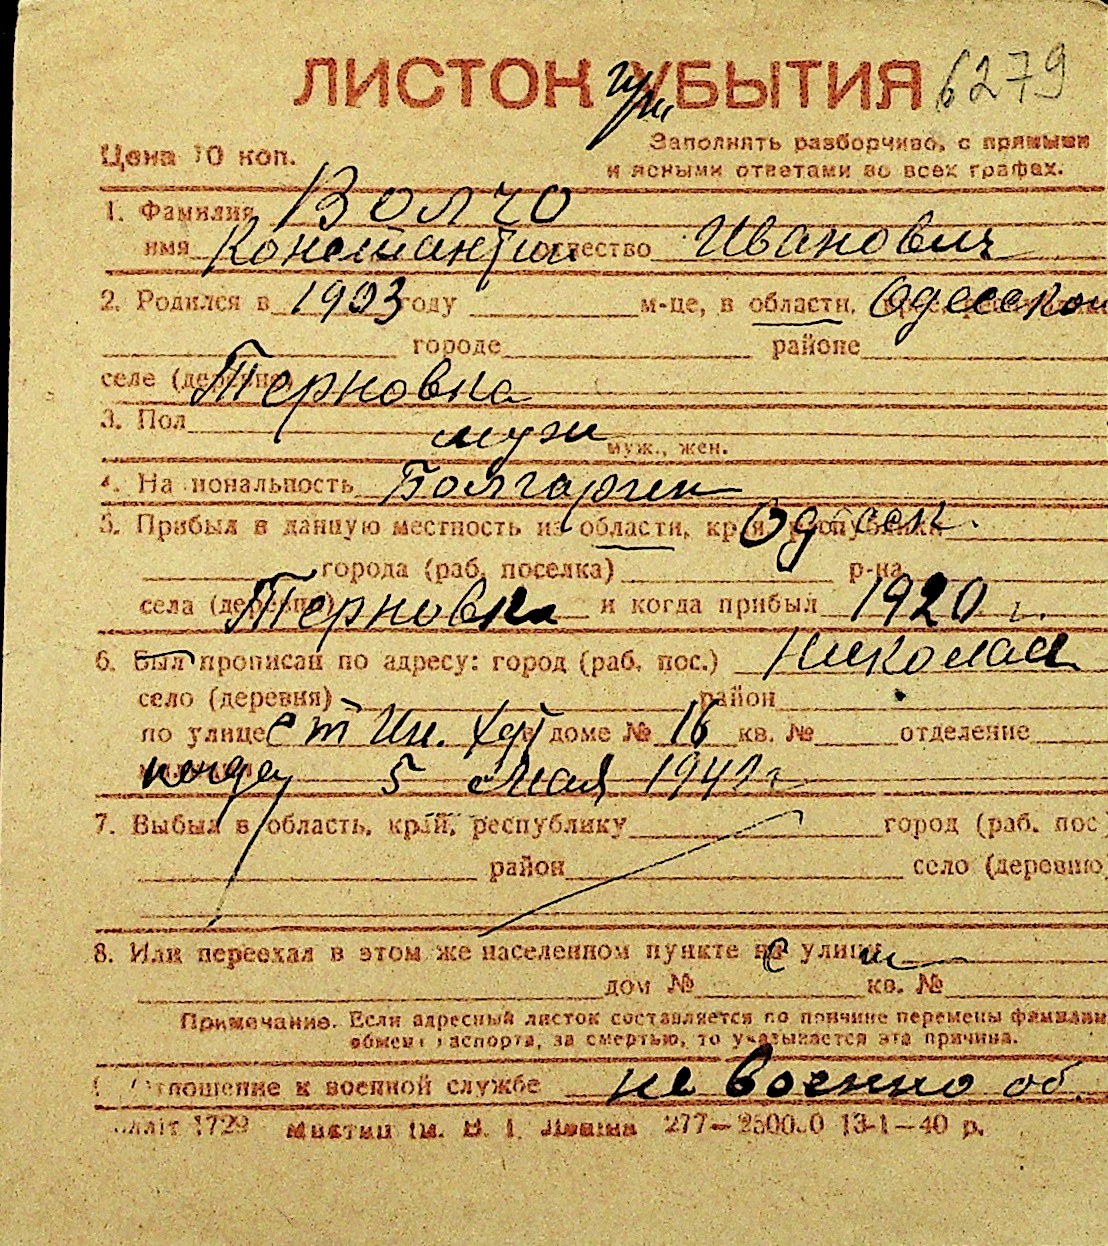 ЛИСТОК УБЫТИЯ 6279
Цена 10 коп.
Заполнять разборчиво, с прямыми
и ясными ответами во всех графах.
1. Фамилия Волчо
имя Константин отчество Иванович
2. Родился в 1903 году м-це, в области, Одесской
городе районе
селе (деревне) Терновка
3. Пол муж
муж., жен.
4. Национальность Болгарин
5. Прибыл в данную местность из области, края, республики Одесск.
города (раб. поселка) р-на
села (деревни) Терновка и когда прибыл 1920 г.
6. Был прописан по адресу: город (раб. пос.) Николаев
село (деревня) район
по улице доме № 16 кв. № отделение
5 мая 1941 г
7. Выбыл в область, край, республику город (раб. пос
район село (деревню)
8. Или переехал в этом же населенном пункте на улицу
дом № кв. №
Примечание. Если адресный листок составляется по причине перемены фамилии
обмена паспорта, за смертью, то указывается эта причина.
Отношение к военной службе не военно об.
1729 им. В. І. Леніна 13-1—40 р.